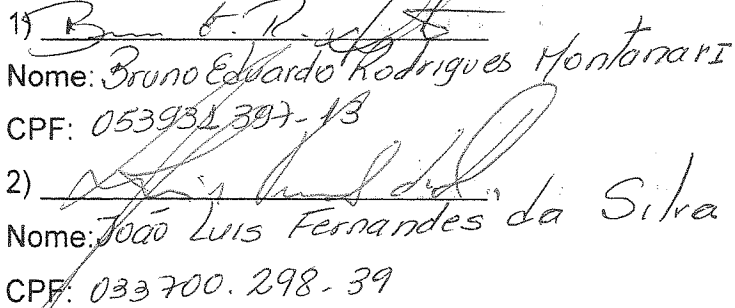 1)
Nome: Bruno Eduardo Rodrigues Montanari
CPF: 053931397-13
2)
Nome: João Luis Fernandes da Silva
CPF: 033700.298-39